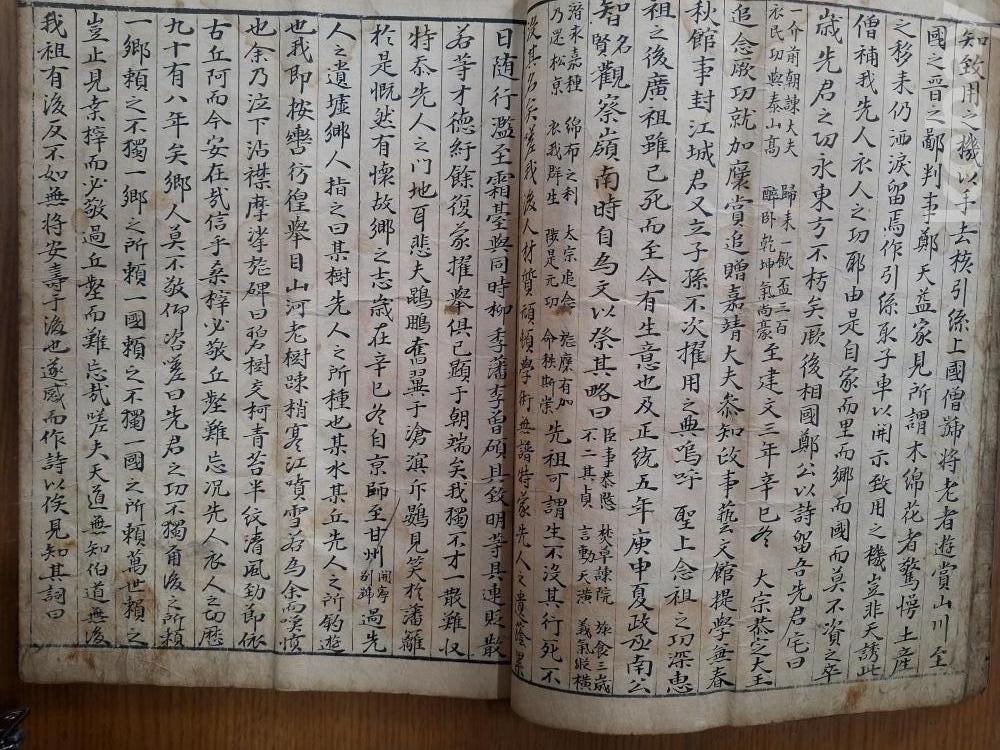 知致用之機以手去核引絲上國僧歸將老者遊賞山川至
國之晋之鄙判事鄭天益家見所謂木綿花者驚愕土産
之移来仍洒淚留焉作引絲承子車以開示致用之機豈非天誘此
僧補我先人衣人之功耶由是自家而里而鄉而國而莫不資之卒
歲先君之功永東方不朽矣厥後相國鄭公以詩留吾先君宅曰
一介前朝諫大夫 歸来一飲盃三百
衣民功與泰山高 醉卧乾坤氣尚豪
至建文三年辛巳冬 太宗恭定大王
追念厥功就加褒賞追贈嘉靖大夫叅知政事藝文館提學兼春
秋館事封江城君又立子孫不次擢用之典嗚呼 聖上念祖之功深惠
祖之後廣祖雖已死而至今有生意也及正統五年庚申夏政丞南公
智名觀察嶺南時自為文以祭其略曰
臣事恭愍 焚草諫院 旅食三歲
不二其貞 言動天潢 義氣縱橫
潛求嘉種 綿布之利 太宗追念 旌褒有加
乃逞松京 衣我群生 陟是元功 命秩斯崇
先祖可謂生不沒其行死不
沒其名矣嗟我後人材質頑頓學術無譜特蒙先人之貴蔭累
日随行濫至霜臺與同時柳季藩李曾碩具致明等具連貶散
若等才德紆餘復蒙擢舉俱已顯于朝端矣我獨不才一散難収
特忝先人之門地耳悲夫鵾鵬奮翼于滄溟斥鷃見笑於藩籬
於是慨然有懷故鄉之志歲在辛巳冬自京師至甘州
過先
人之遺墟鄉人指之曰某樹先人之所種也某水某丘先人之所釣遊
也我即按轡彷徨舉目山河老樹踈梢寒江噴雪若為余而嘆憤
也余乃泣下沾襟摩挲旌碑曰碧樹交柯青苔半紋清風勁節依
古丘阿而今安在哉信乎桑梓必敬丘壑難忘况先人衣人之功歷
九十有八年矣鄉人莫不敬仰咨嗟曰先君之功不獨甬後之所賴
一鄉賴之不獨一鄉之所賴一國賴之不獨一國之所賴萬世賴之
豈止見桒梓而必敬過丘壑而難忘哉嗟夫天道無知伯道無後
我祖有後反不如無將安壽于後也遂感而作詩以俟見知其詞曰